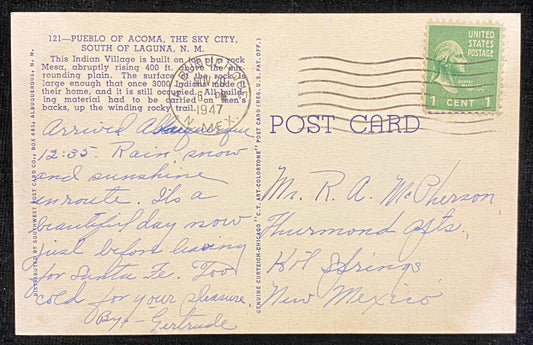 121—PUEBLO OF ACOMA, THE SKY CITY,
SOUTH OF LAGUNA, N. M.
This Indian Village is built on top of a rock
Mesa, abruptly rising 400 ft. above the sur-
rounding plain. The surface of the rock is
large enough that once 3000 Indians made it
their home, and it is still occupied. All build-
ing material had to be carried on men's
backs, up the winding rocky trail.
Arrived Albuquerque
12:35. Rain, snow
and sunshine
enroute. It's a
beautiful day now
just before leaving
for Santa Fe. Too
cold for your pleasure.
Bye - Gertrude
DISTRIBUTED BY SOUTHWEST POST CARD CO., BOX 685, ALBUQUERQUE, N. M.
GENUINE CURTEICH-CHICAGO "C.T. ART-COLORTONE" POST CARD (REG. U.S. PAT. OFF.)
ALBUQUERQUE
NOV
1947
N. MEX.
UNITED
STATES
POSTAGE
1 CENT 1
POST CARD
Mr. R. A. McPherson
Thurmond Apts.
Hot Springs
New Mexico